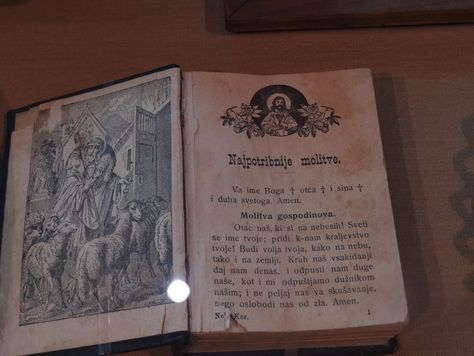 Najpotribnije molitve.
Va ime Boga † otca † i sina †
i duha svetoga. Amen.
Molitva gospodinova.
Otac naš, ki si na nebesih! Sveti
se ime tvoje; pridi k-nam kraljevstvo
tvoje! Budi volja tvoja, kako na nebu,
tako i na zemlji. Kruh naš vsakidanji
daj nam denas, i odpusti nam duge
naše, kot i mi odpušćamo dužnikom
našim; i ne peljaj nas va skušavanje,
nego oslobodi nas od zla. Amen.
Kor.
1